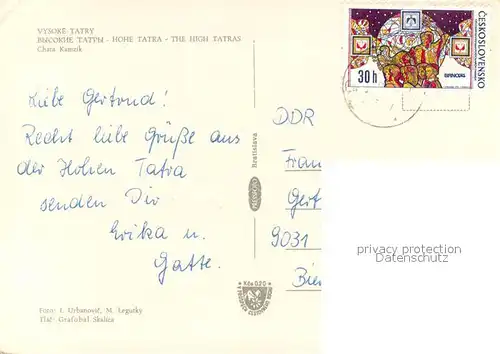 VYSOKÉ TATRY
ВЫСОКИЕ ТАТРЫ - HOHE TATRA - THE HIGH TATRAS
Chata Kamzík
Liebe Gertrud!
Recht liebe Grüße aus
der Hohen Tatra
senden Dir
Erika u.
Gatte.
Foto: I. Urbanovič, M. Legutky
Tlač: Grafobal Skalica
Bratislava
PRESSFOTO
Kčs 0,20
ČESKOSLOVENSKO
30 h
DDR
Fran
Gert
9031
Bie
privacy protection
oldthing.de